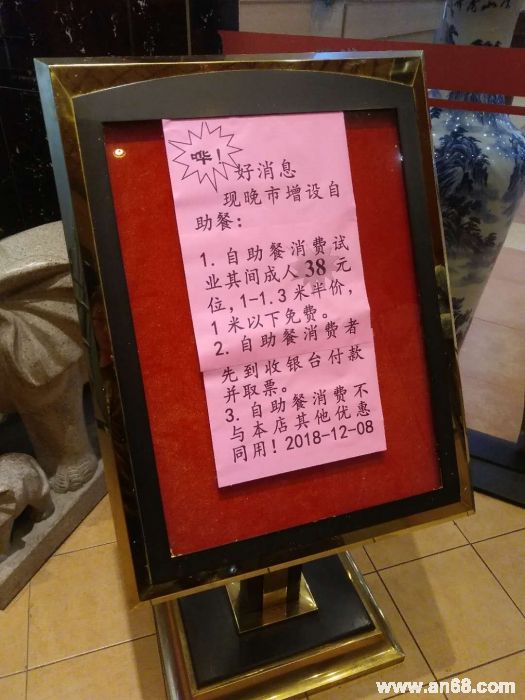 哗！
好消息
现晚市增设自
助餐：
1. 自助餐消费试
业其间成人 38 元
位，1-1.3 米半价，
1 米以下免费。
2. 自助餐消费者
先到收银台付款
并取票。
3. 自助餐消费不
与本店其他优惠
同用！2018-12-08
www.an68.com